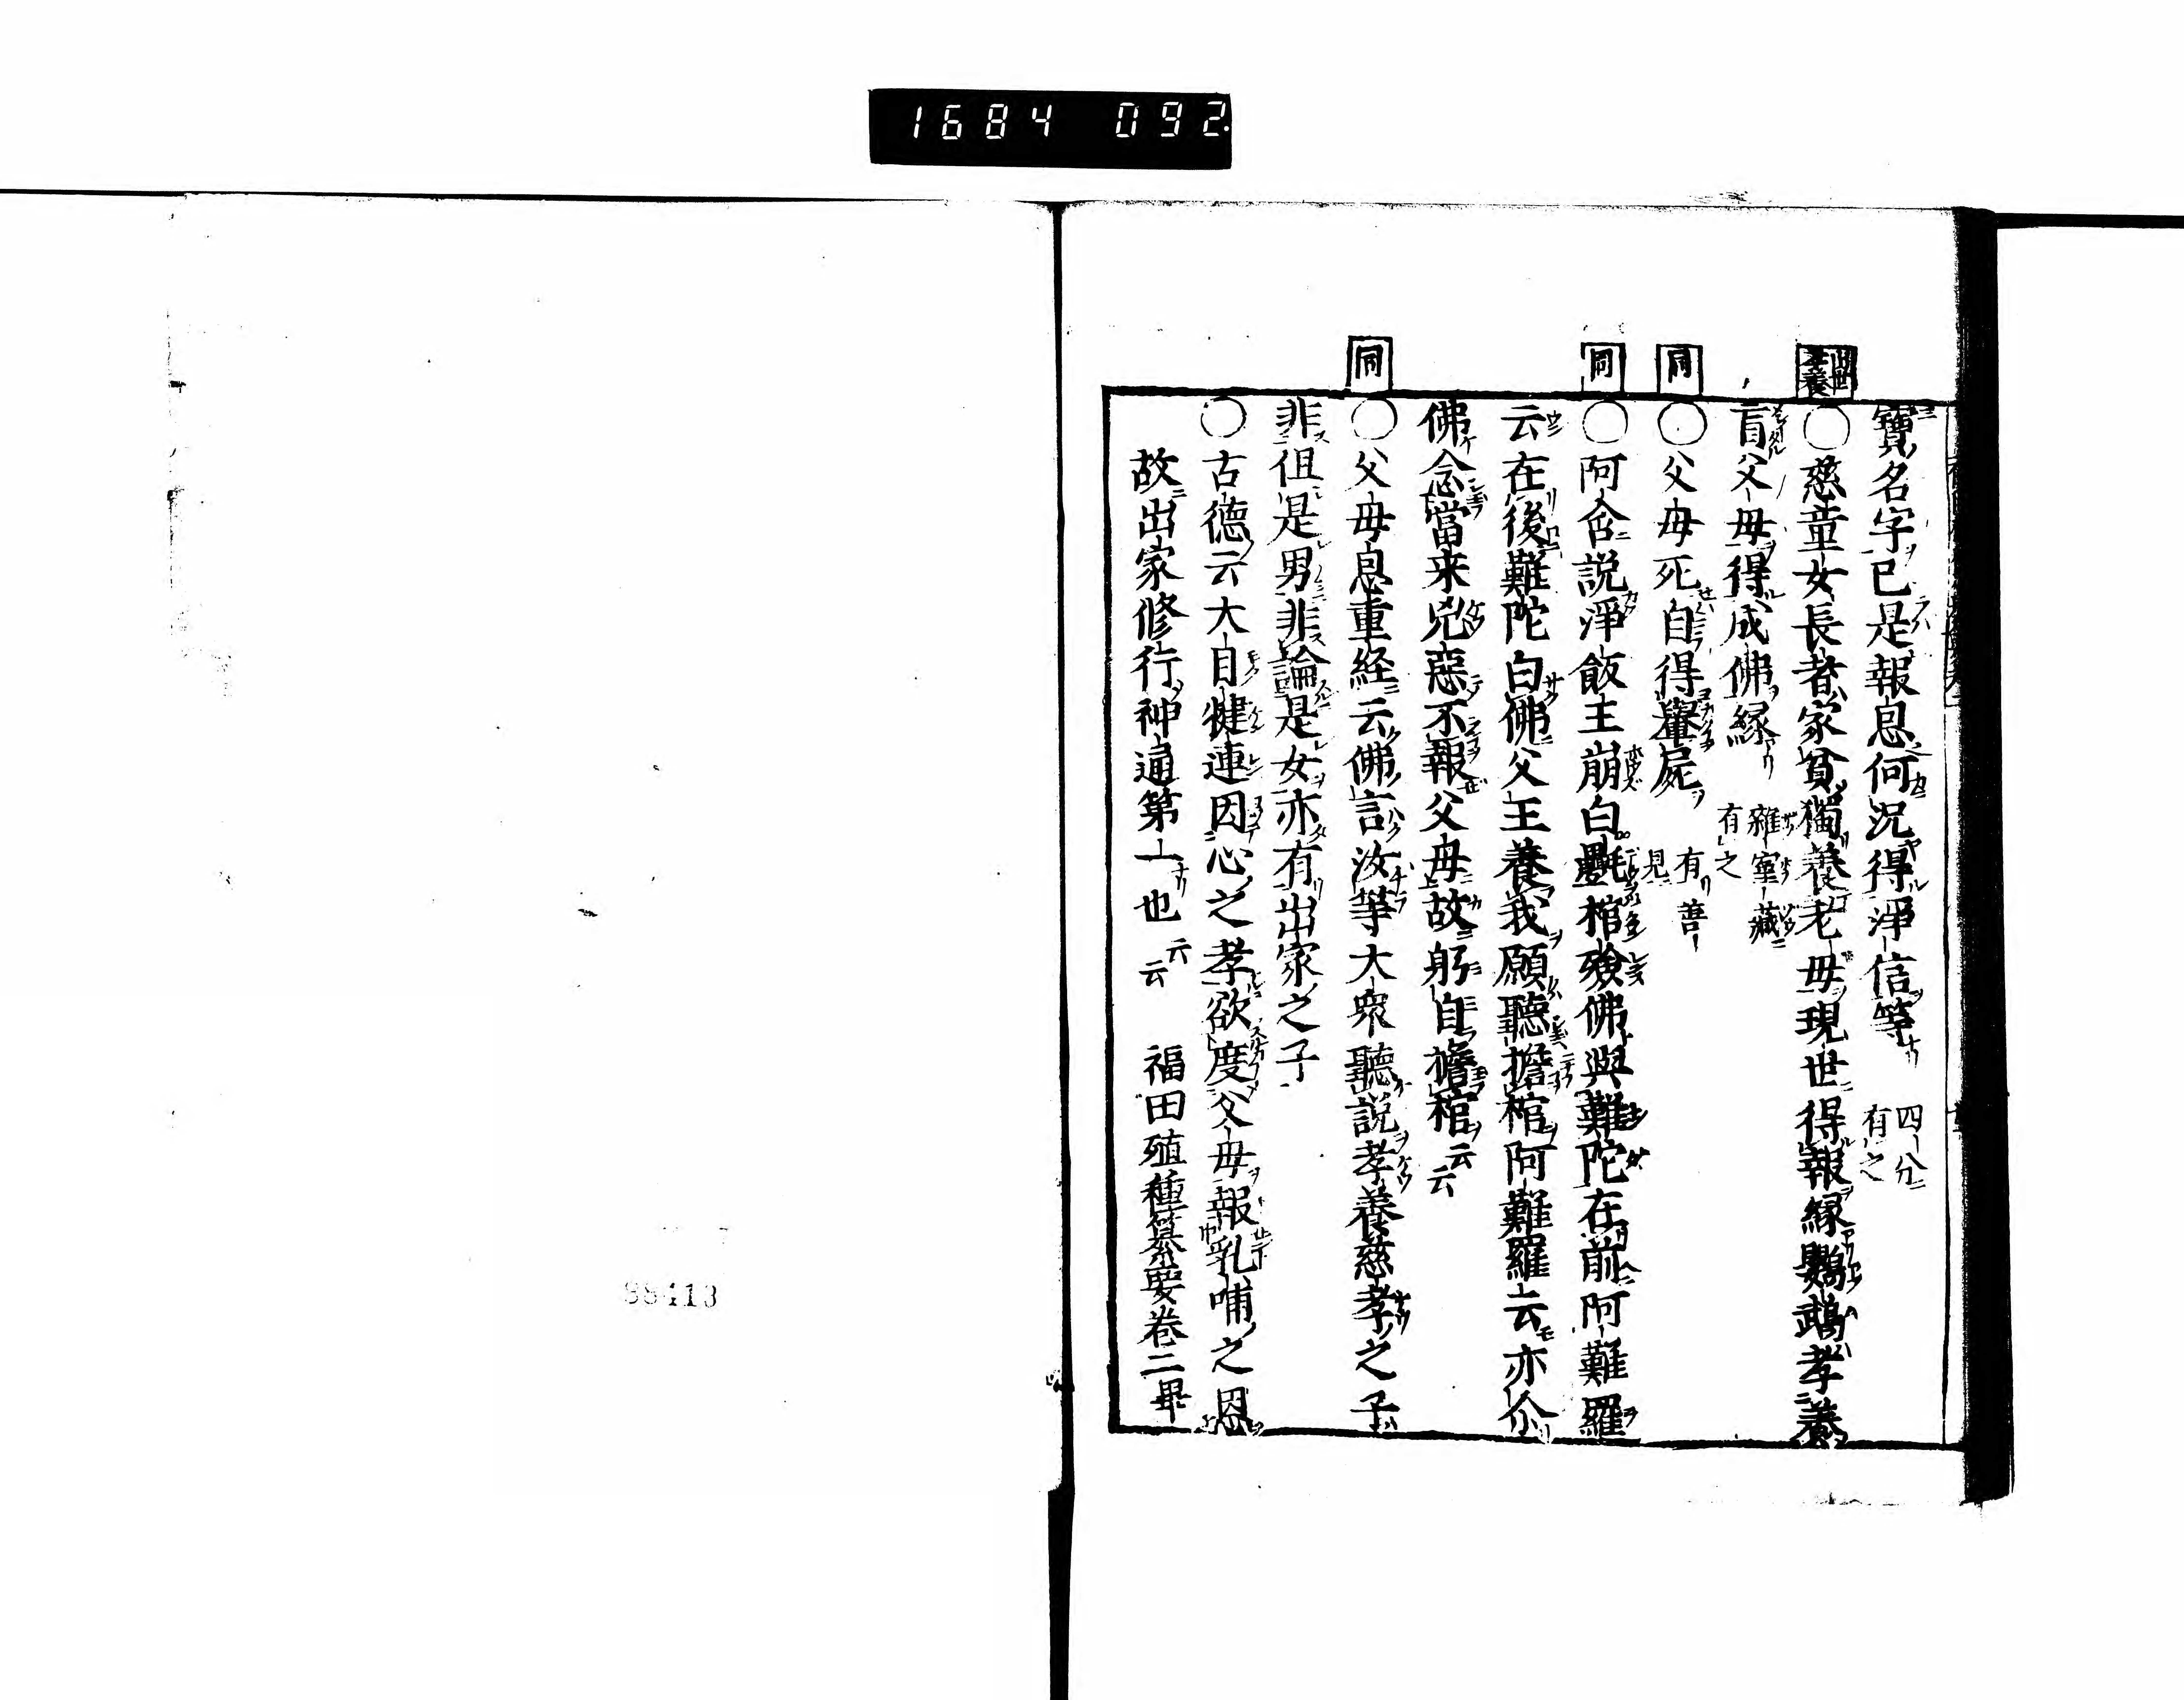 1684 092.
寶名字已是報恩何況得淨信等 四分 有之
出世 孝養
〇慈童女長者家貧獨養老母現世得報縁鸚鵡孝養
盲父母得成佛縁 雜宝藏 有之
同
〇父母死自得轝屍 有善見
同
〇阿含説淨飯王崩白氎棺殮佛與難陀在前阿難羅
云在後難陀白佛父王養我願聽擔棺阿難羅云亦尒
佛念當来兇惡不報父母故躬自擔棺云云
同
〇父母恩重経云佛言汝等大衆聽説孝養慈孝之子
非但是男非論是女亦有出家之子
〇古徳云大目犍連因心之孝欲度父母報乳哺之恩
故出家修行神通第一也云云 福田殖種纂要卷二畢
88413